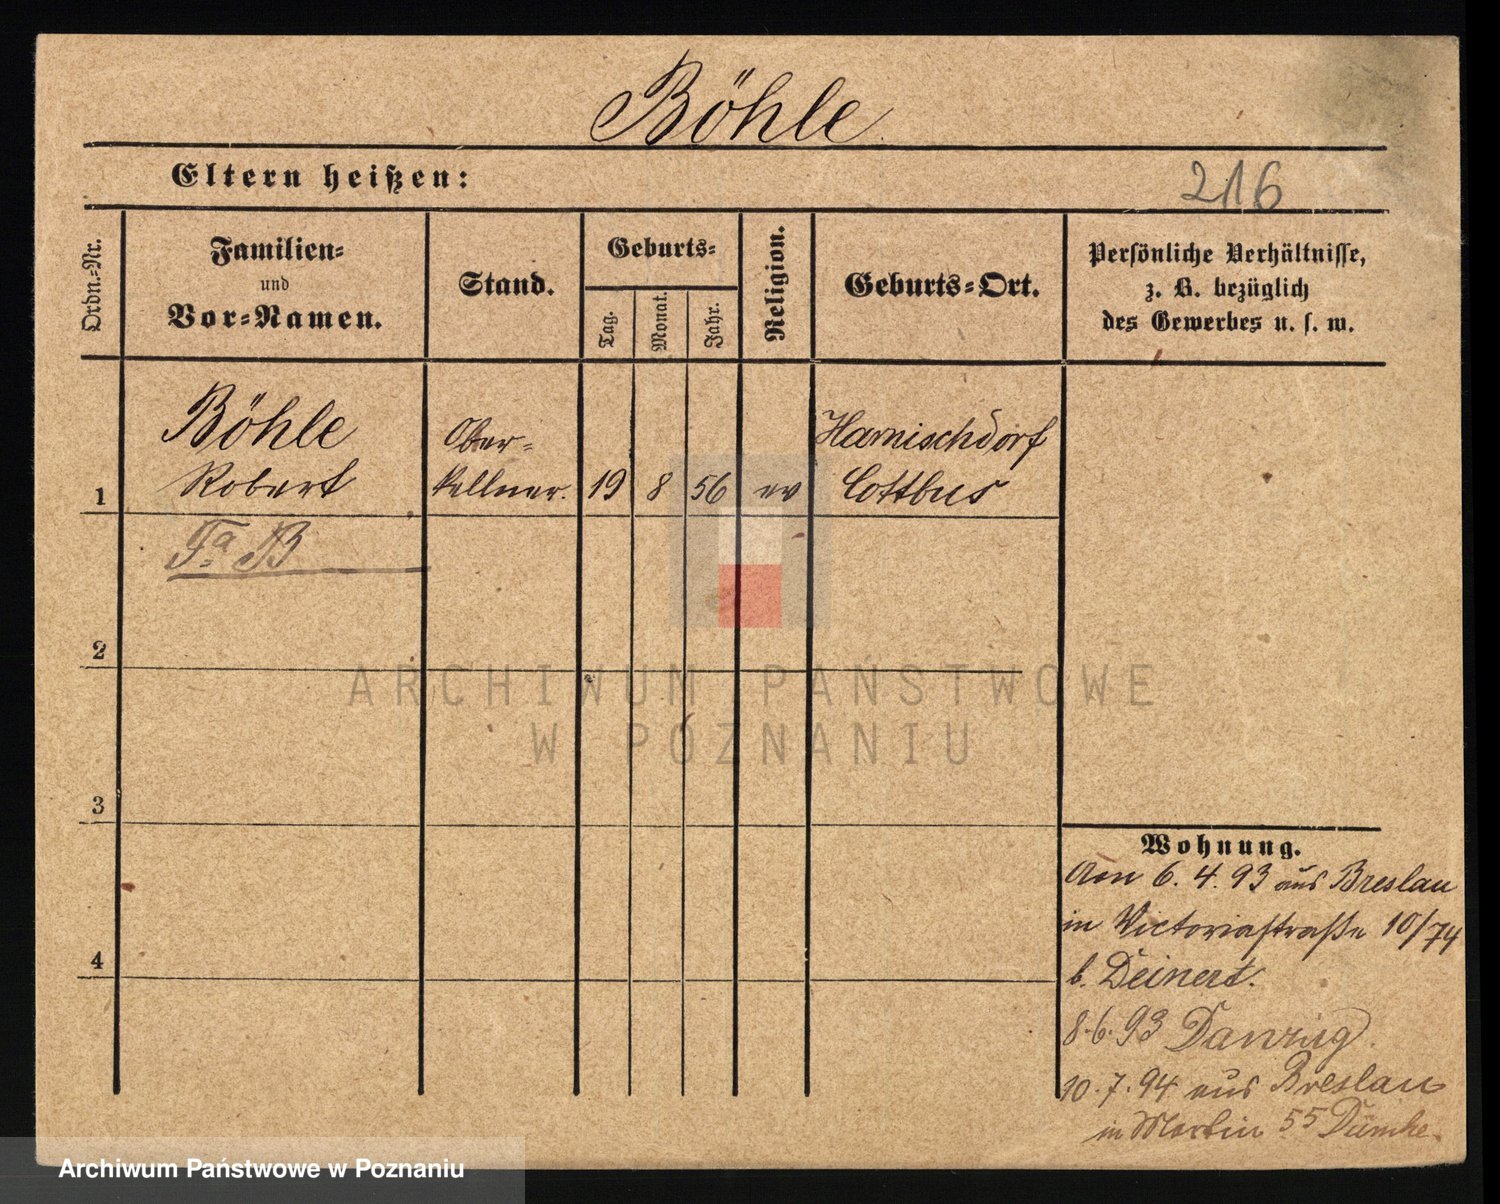 Böhle
Eltern heißen:
216
Ordn.-Nr.
Familien-
und
Vor-Namen.
Stand.
Geburts-
Tag.
Monat.
Jahr.
Religion.
Geburts-Ort.
Persönliche Verhältnisse,
z. B. bezüglich
des Gewerbes u. s. w.
1
Böhle
Robert
Ober-
kellner.
19
8
56
ev
Harnischdorf
Cottbus
Fa B
2
3
4
Wohnung.
Am 6. 4. 93 aus Breslau
in Victoriastraße 10/74
b. Deinert.
8.6.93 Danzig.
10.7.94 aus Breslau
in Martin 55 Dümke.
ARCHIWUM PAŃSTWOWE
W POZNANIU
Archiwum Państwowe w Poznaniu